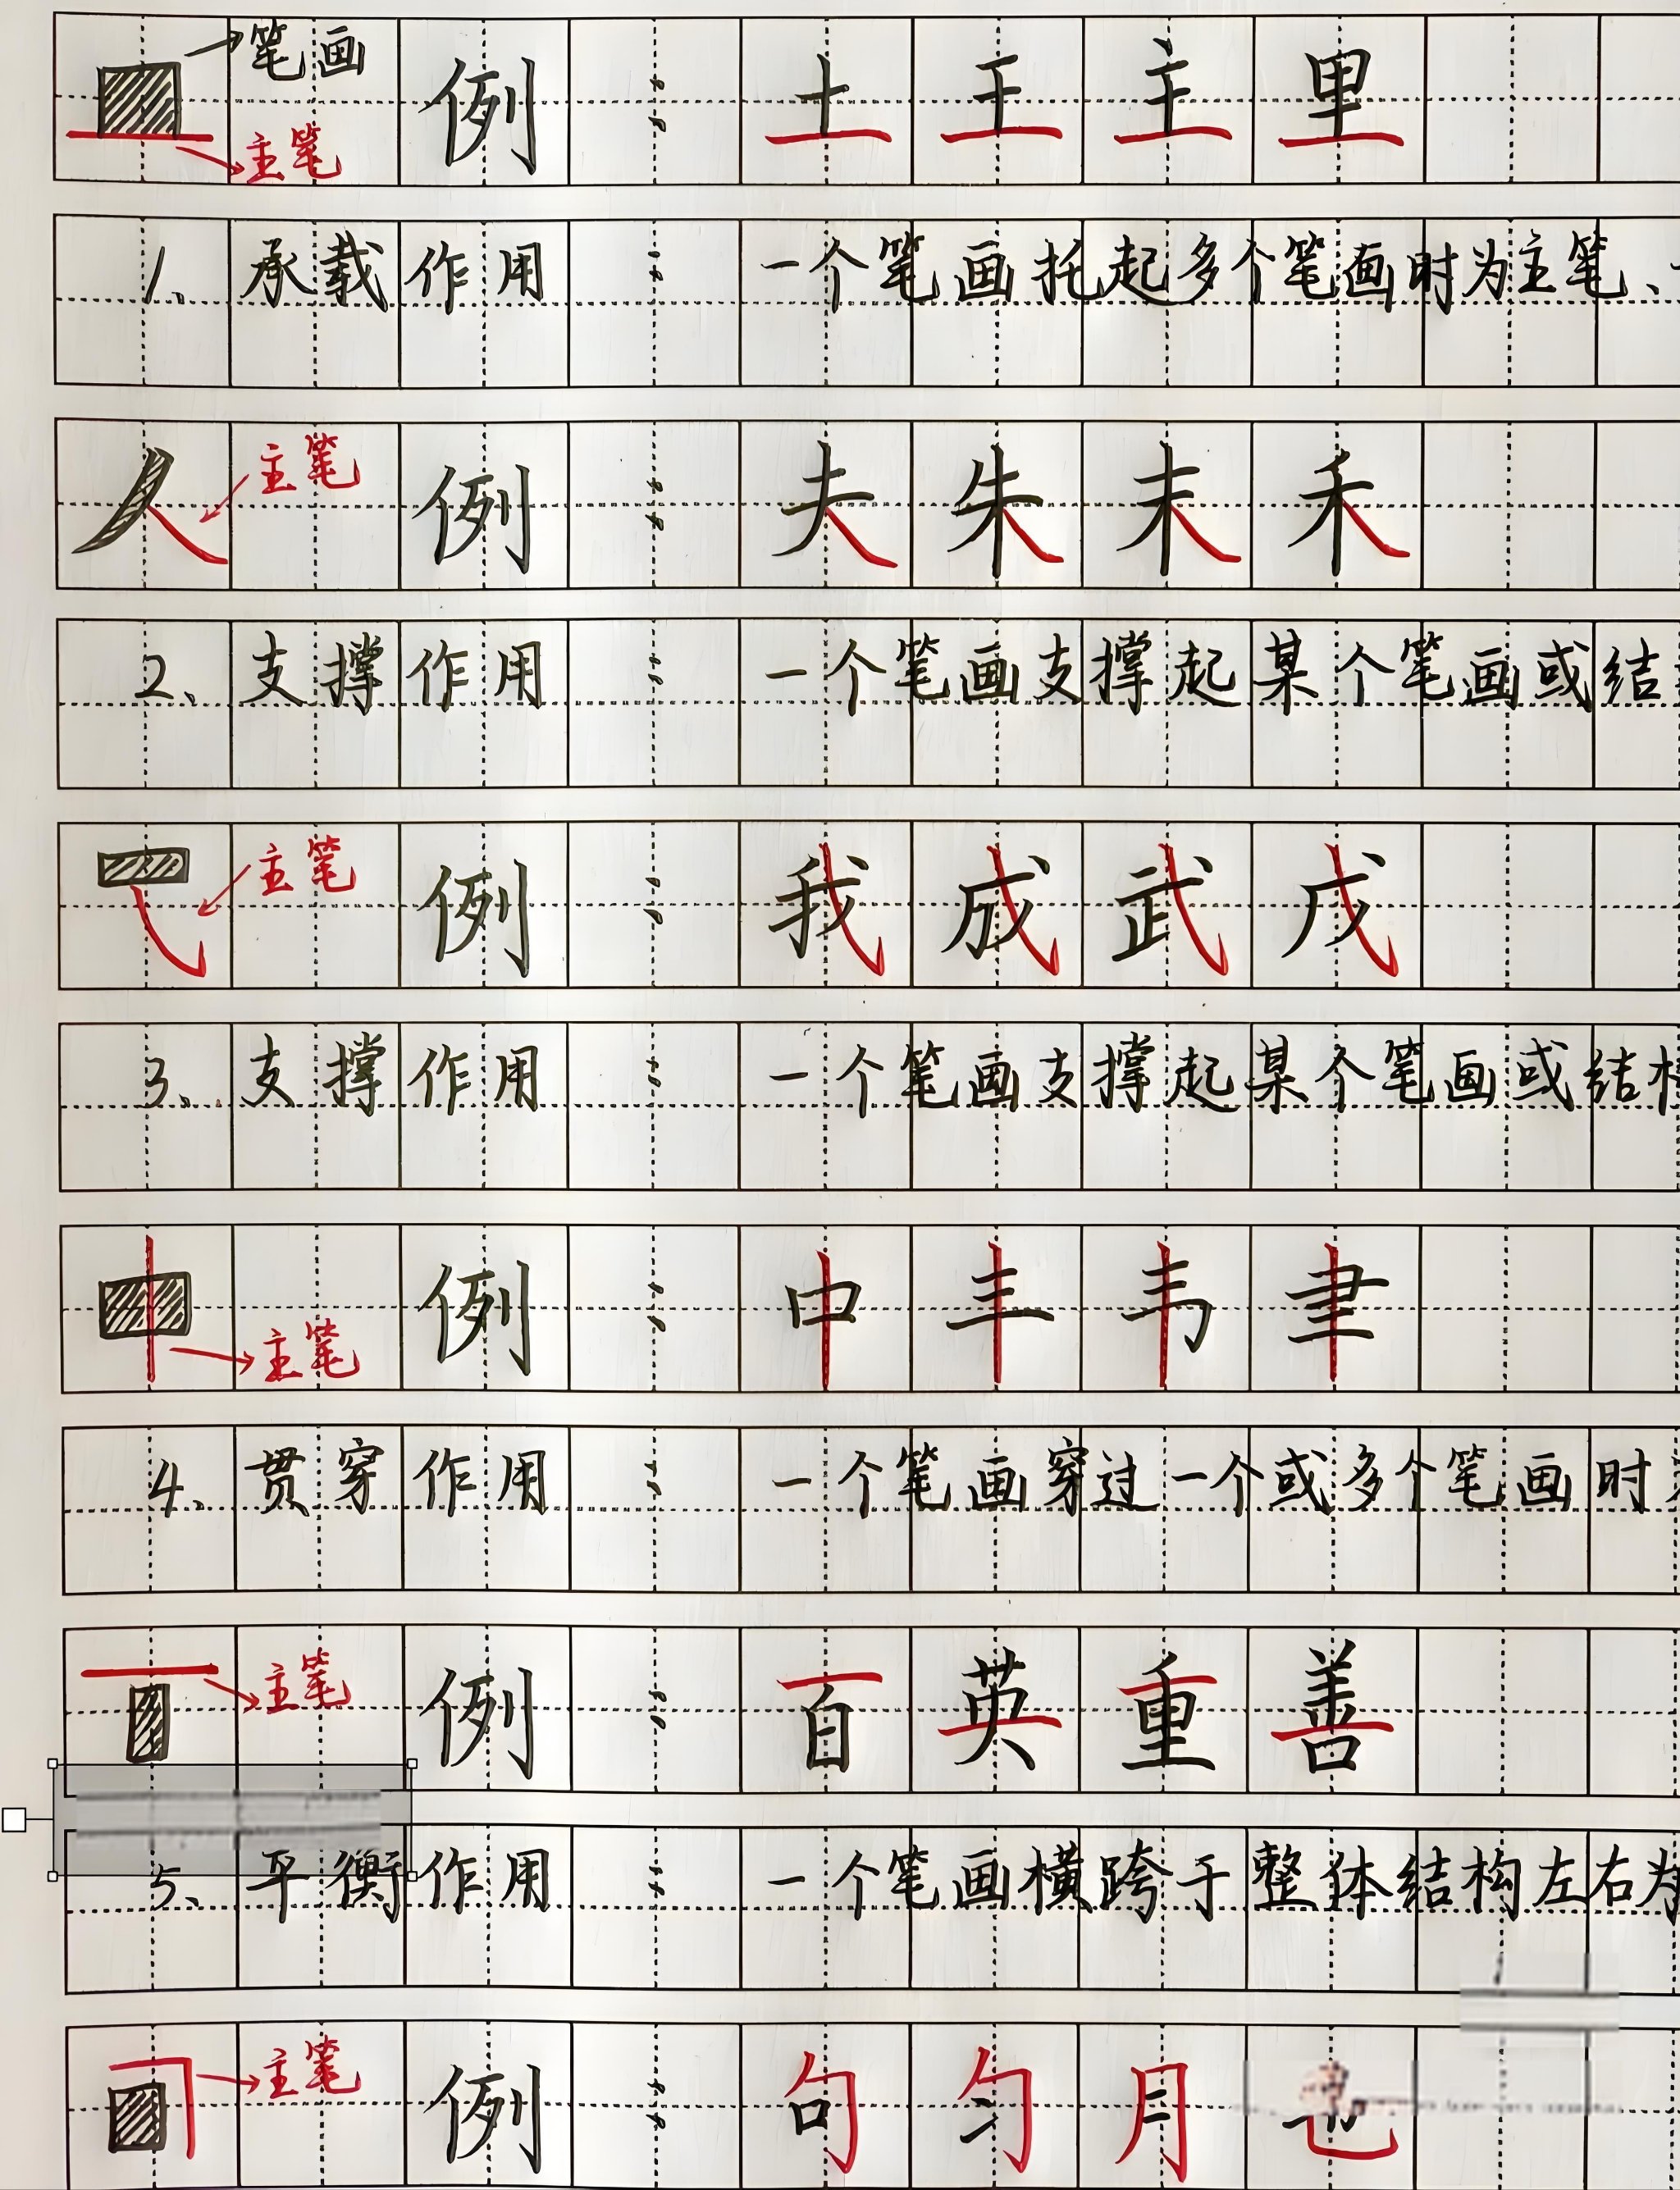 笔画
主笔
例：土王主里
1、承载作用：一个笔画托起多个笔画时为主笔、
主笔
例：夫朱末禾
2、支撑作用：一个笔画支撑起某个笔画或结
主笔
例：我成武戊
3、支撑作用：一个笔画支撑起某个笔画或结构
主笔
例：中丰韦聿
4、贯穿作用：一个笔画穿过一个或多个笔画时
主笔
例：百英重善
5、平衡作用：一个笔画横跨于整体结构左右为
主笔
例：句匀月